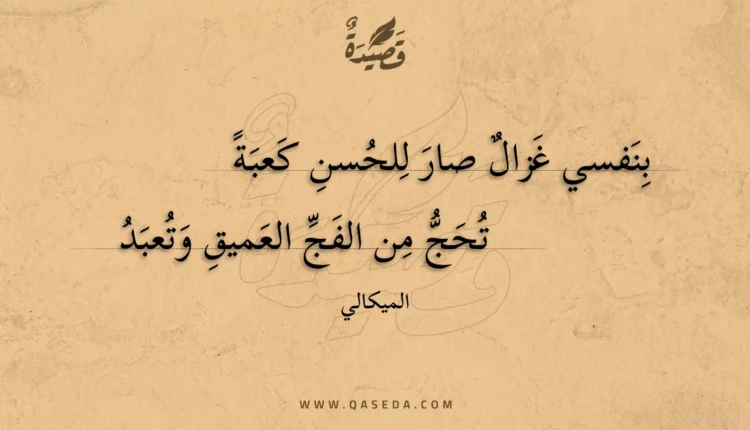 قَصِيْدَةٌ
بِنَفسي غَزالٌ صارَ لِلحُسنِ كَعبَةً
تُحَجُّ مِن الفَجِّ العَميقِ وَتُعبَدُ
الميكالي
WWW.QASEDA.COM